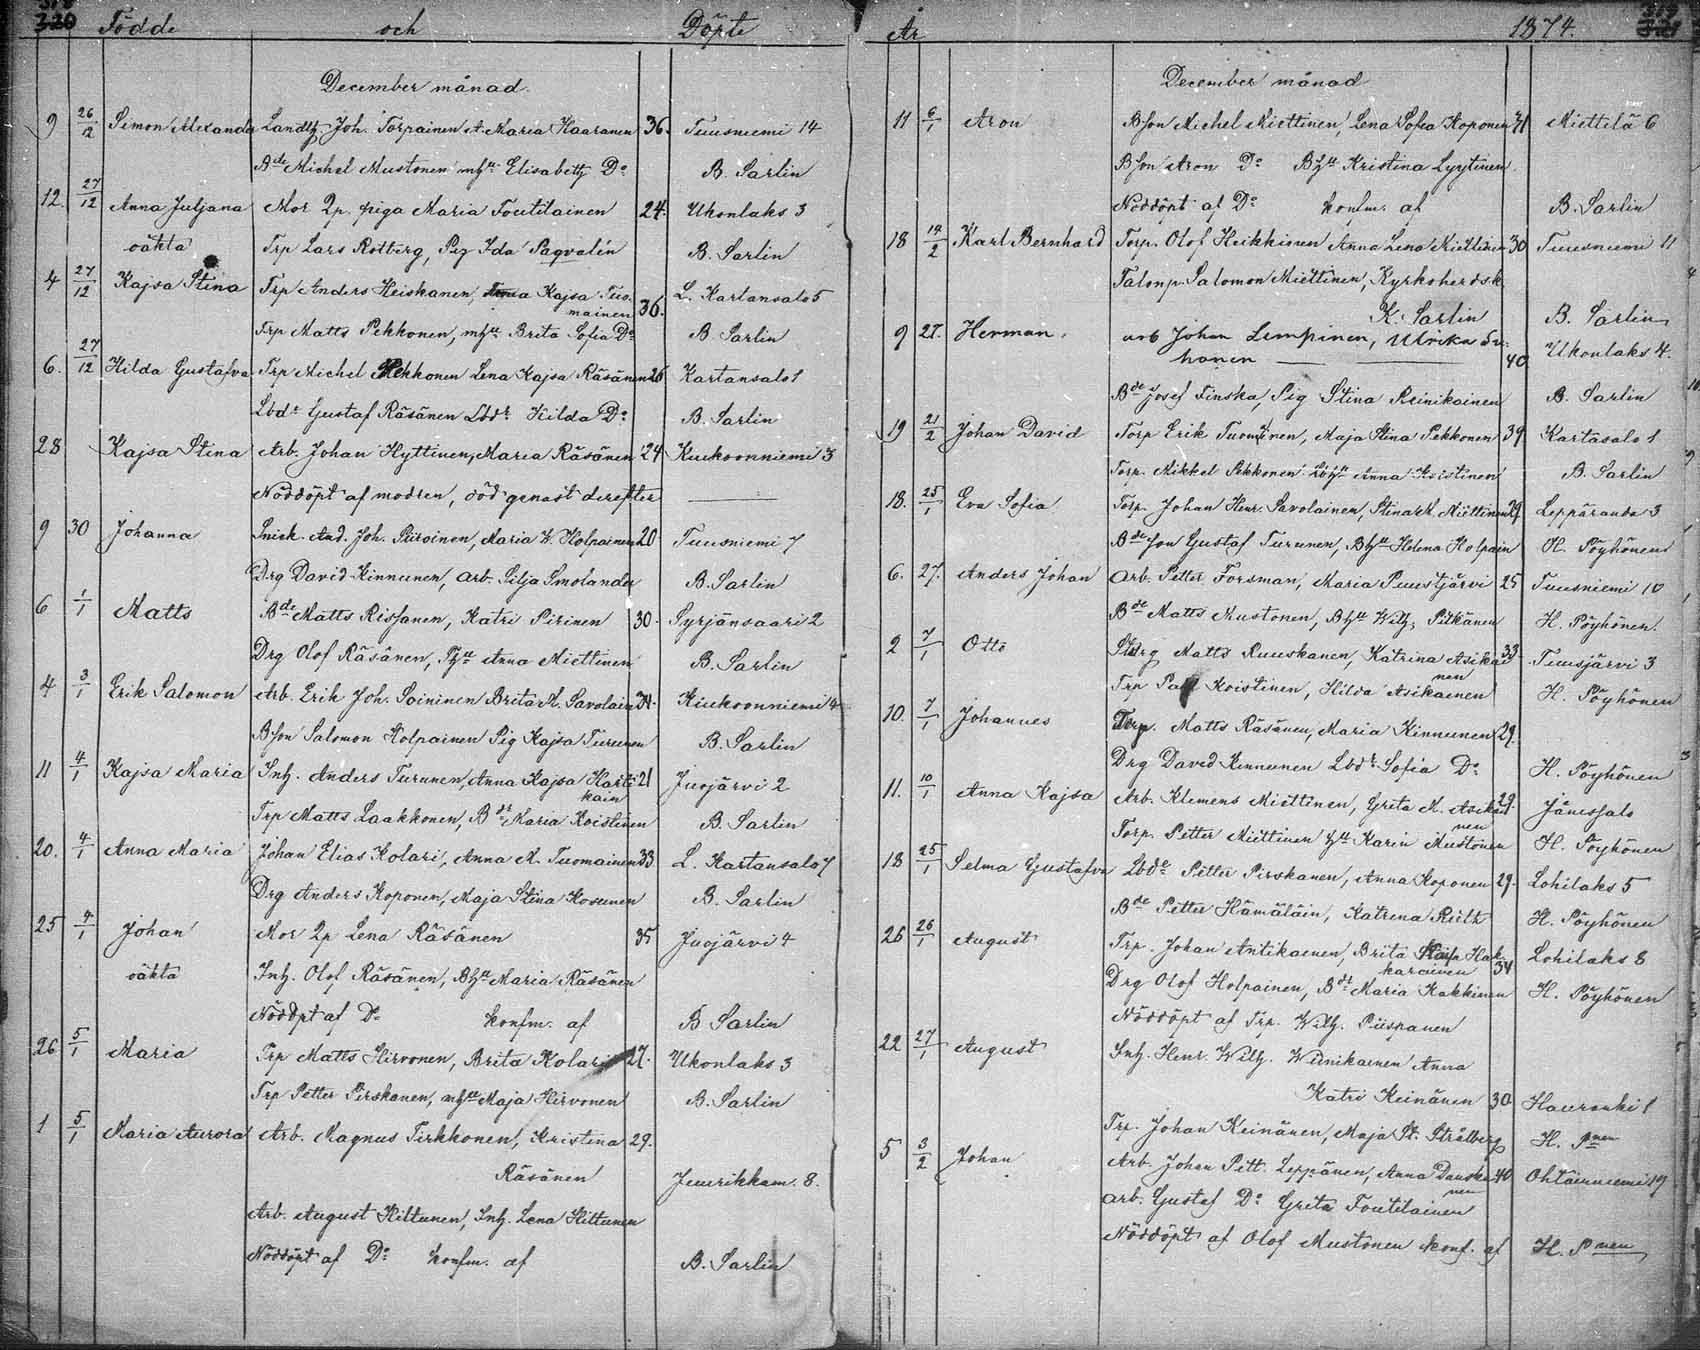 Födde och Döpte
December månad.
9 26/12 Simon Alexander Landtz Joh. Torpainen A. Maria Haaranen 36. Tuusniemi 14
Bde Michel Mustonen mhu Elisabeth Do B. Sarlin
12. 27/12 Anna Juljana Mor Qp. piga Maria Toutilainen 24. Ukonlaks 3
oäkta Trp Lars Rotberg, Pig Ida Paqvalin B. Sarlin
4 27/12 Kajsa Stina Trp Anders Heiskanen, Kajsa Tuo- L. Kartansalo 5
mainen 36.
Trp Matts Pekkonen, mhu Brita Sofia Do B. Sarlin
6. 27/12 Hilda Gustafva Trp Michel Pekkonen Lena Kajsa Räsänen 26 Kartansalo 1
Lbdr Gustaf Räsänen Lbdr Hilda Do B. Sarlin
28 Kajsa Stina Arb. Johan Hyttinen, Maria Räsänen 24 Kiukoonniemi 3
Nöddöpt af modren, död genast derefter
9 30 Johanna Snick. And. Joh. Piiroinen, Maria W. Holpainen 20 Tuusniemi 7
Drg David Kinnunen, Arb. Silja Smolander B. Sarlin
6 1/1 Matts Bde Matts Rissanen, Katri Pirinen 30. Syrjänsaari 2
Drg Olof Räsänen, Anna Miettinen B. Sarlin
4. 3/1 Erik Salomon Arb. Erik Joh. Soininen Brita M. Savolain 34. Kiukoonniemi 4
Bson Salomon Holpainen Pig Kajsa Turunen B. Sarlin
11 4/1 Kajsa Maria Inh. Anders Turunen, Anna Kajsa Harti 21 Juojärvi 2
kain
Trp Matts Laakkonen, Bdr Maria Koistinen B. Sarlin
20. 4/1 Anna Maria Johan Elias Kolari, Anna M. Tuomainen 33 L. Kartansalo 7
Drg Anders Koponen, Maja Stina Kosunen B. Sarlin
25 4/1 Johan Mor Qp Lena Räsänen 35 Juojärvi 4
oäkta Inh. Olof Räsänen, Bhu Maria Räsänen
Nöddpt af Do konfm. af B Sarlin
26 5/1 Maria Trp Matts Hirvonen, Brita Kolari 27. Ukonlaks 3
Trp Petter Pirskanen, mhu Maja Hirvonen B. Sarlin
1 5/1 Maria Aurora Arb. Magnus Tirkkonen, Kristina 29.
Räsänen Juurikkam. 8.
Arb. August Hiltunen, Inh. Lena Hiltunen
Nöddöpt af Do konfm. af B. Sarlin
År 1874.
December månad
11 6/1 Aron Bson Michel Miettinen, Lena Sofia Koponen 41 Miettilä 6
Bson Aron Do Bhu Kristina Lyytinen
Nöddöpt af Do konfm. af B. Sarlin
18 Karl Bernhard Torp. Olof Heikkinen Anna Lena Miettinen 30 Tuusniemi 11
Talonp. Salomon Miettinen, Kyrkoherdsk
K. Sarlin B. Sarlin
9 27. Herman. Arb Johan Limpinen, Ulrika Su-
honen 40 Ukonlaks 4.
Bde Josef Finska, Pig Stina Reinikainen B. Sarlin
19 21/2 Johan David Torp Erik Tuominen, Maja Stina Pekkonen 39 Kartasalo 1
Torp. Mikkel Pekkonen Anna Koistinen B. Sarlin
18. 25/1 Eva Sofia Torp. Johan Henr. Savolainen, Stina M. Miettinen 29. Leppäranda 3
Bdeson Gustaf Turunen, Bhu Helena Holpain H. Pöyhönen
6. 27. Anders Johan Arb. Petter Forsman, Maria Puustjärvi 25 Tuusniemi 10
Bde Matts Mustonen, Bhu Wilh. Pitkänen H. Pöyhönen.
2 7/1 Otto Matts Ruuskanen, Katrina Asikai 33 Tuusjärvi 3
nen
Trp Koistinen, Hilda Asikainen H. Pöyhönen
10. 7/1 Johannes Torp. Matts Räsänen, Maria Kinnunen 29.
Drg David Kinnunen Lbdr Sofia Do H. Pöyhönen
11. 10/1 Anna Kajsa Arb. Klemens Miettinen, Greta M. Asikai 29. Jänessalo
nen
Torp. Petter Miettinen hu Karin Mustonen H. Pöyhönen
18 25/1 Selma Gustafva Lbde Petter Pirskanen, Anna Koponen 29. Lohilaks 5
Bde Petter Hämäläin, Katrina H. Pöyhönen
26 26/1 August Trp. Johan Antikainen, Brita Hak- Lohilaks 8
karainen 34
Drg Olof Holpainen, Bdr Maria Kakkinen H. Pöyhönen
Nöddöpt af Trp. Wilh. Piispanen
22 27/1 August Inh. Henr. Wilh. Wiinikainen Anna
Katri Keinänen 30 Hauranki 1
Trp. Johan Keinänen, Maja St. Strålberg H. Pnen
5 3/2 Johan Arb. Johan Pett. Leppänen, Anna Danska 40 Ohtäinniemi 19
nen
Arb. Gustaf Do Greta Toutilainen
Nöddöpt af Olof Mustonen konf. af H. Pnen